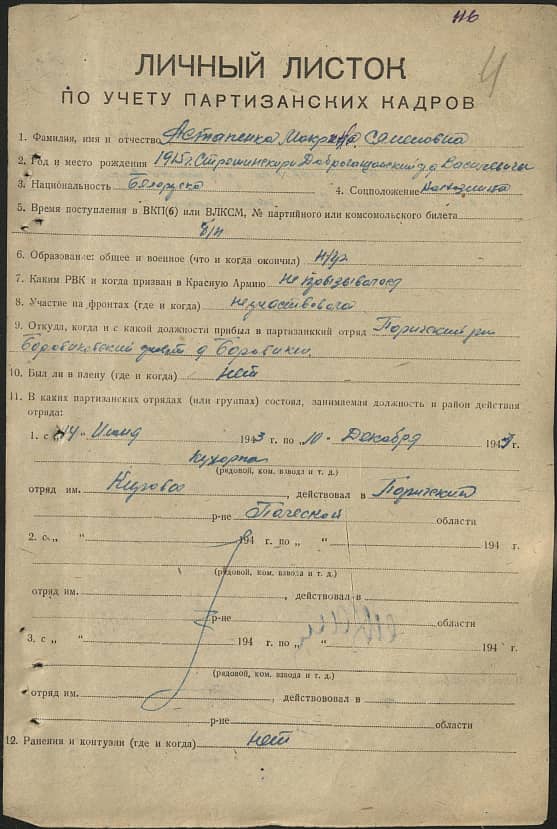 116
4
ЛИЧНЫЙ ЛИСТОК
ПО УЧЕТУ ПАРТИЗАНСКИХ КАДРОВ
1. Фамилия, имя и отчество Астапенко Семеновна
2. Год и место рождения 1915 г. Стрешинский р-н д. Василевичи
3. Национальность Белоруска 4. Соцположение
5. Время поступления в ВКП(б) или ВЛКСМ, № партийного или комсомольского билета
б/п
6. Образование: общее и военное (что и когда окончил) н/гр
7. Каким РВК и когда призван в Красную Армию не призывалась
8. Участие на фронтах (где и когда) не участвовала
9. Откуда, когда и с какой должности прибыл в партизанкий отряд Паричский р-н
Боровиковский д Боровики.
10. Был ли в плену (где и когда) нет
11. В каких партизанских отрядах (или группах) состоял, занимаемая должность и район действия
отряда:
1. с „14" 1943 г. по „10" Декабря 194 г.
Кухарка
(рядовой, ком. взвода и т. д.)
отряд им. Кирова, действовал в Паричский
р-не области
2. с „ " 194 г. по „ " 194 г.
(рядовой, ком. взвода и т. д.)
отряд им. , действовал в
р-не области
3. с „ " 194 г. по „ " 194 г.
(рядовой, ком. взвода и т. д.)
отряд им. , действововал в
р-не области
12. Ранения и контузии (где и когда) нет